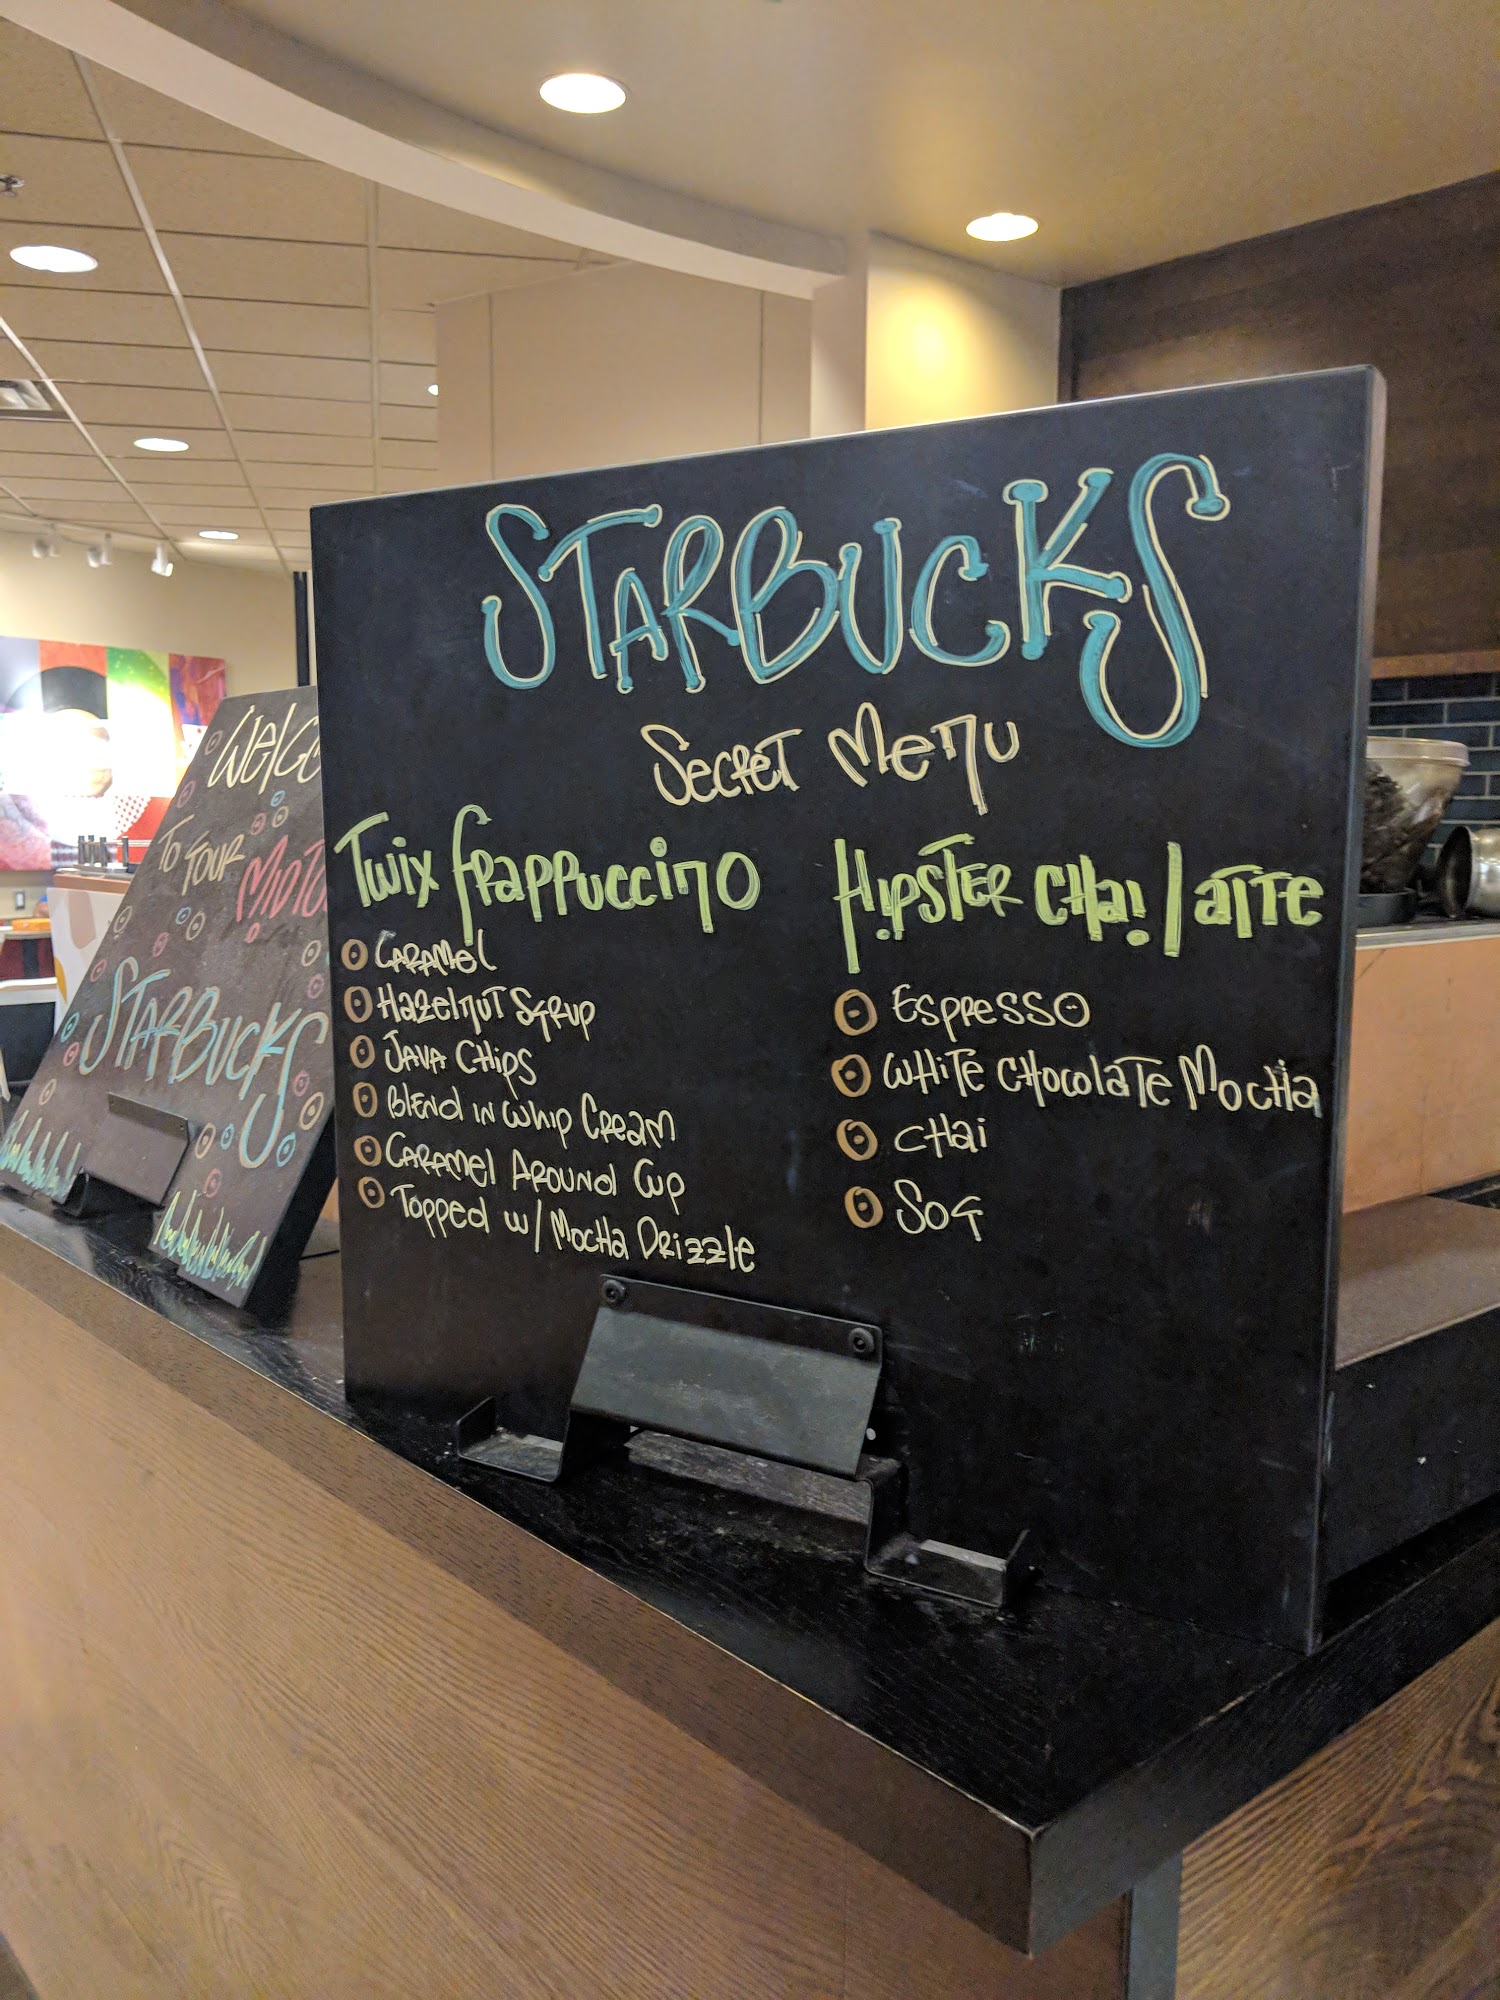 STARBUCKS
Secret Menu
Twix Frappuccino
Caramel
Hazelnut Syrup
Java Chips
Blend in Whip Cream
Caramel Around Cup
Topped w/ Mocha Drizzle
Hipster Chai Latte
Espresso
White Chocolate Mocha
Chai
Soy
To Your
STARBUCKS